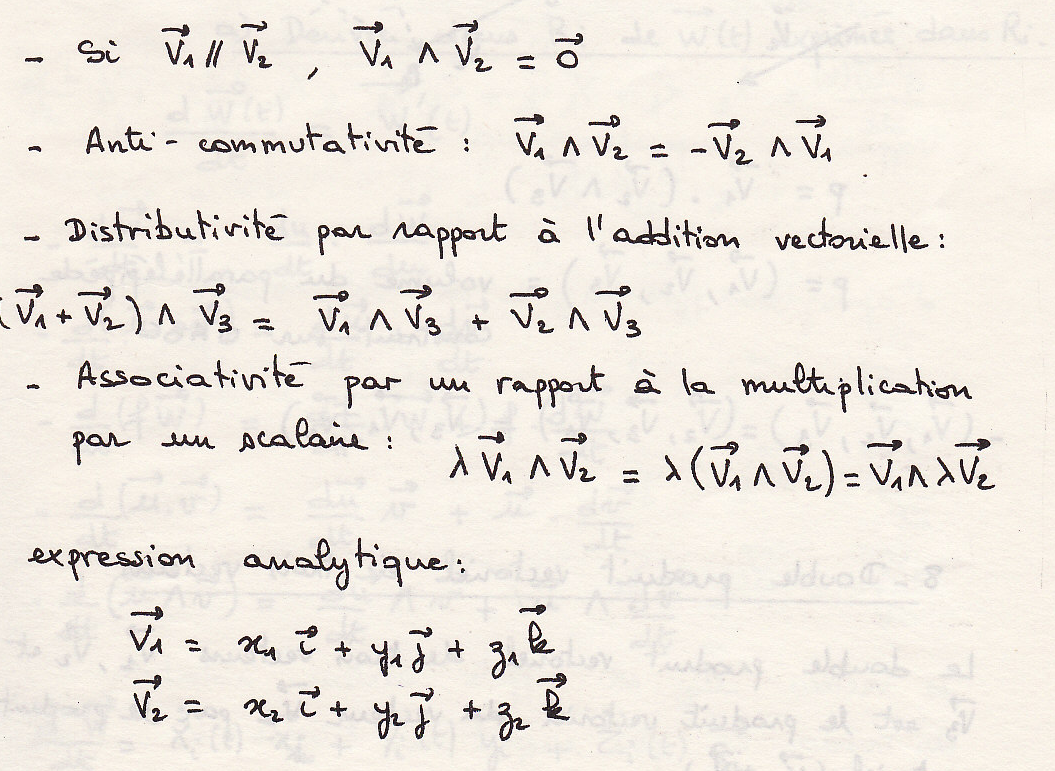 - Si V⃗1 // V⃗2 , V⃗1 ∧ V⃗2 = 0⃗
- Anti-commutativité : V⃗1 ∧ V⃗2 = -V⃗2 ∧ V⃗1
- Distributivité par rapport à l'addition vectorielle :
(V⃗1 + V⃗2) ∧ V⃗3 = V⃗1 ∧ V⃗3 + V⃗2 ∧ V⃗3
- Associativité par un rapport à la multiplication
par un scalaire : λ V⃗1 ∧ V⃗2 = λ (V⃗1 ∧ V⃗2) = V⃗1 ∧ λ V⃗2
expression analytique :
V⃗1 = x1 i⃗ + y1 j⃗ + z1 k⃗
V⃗2 = x2 i⃗ + y2 j⃗ + z2 k⃗